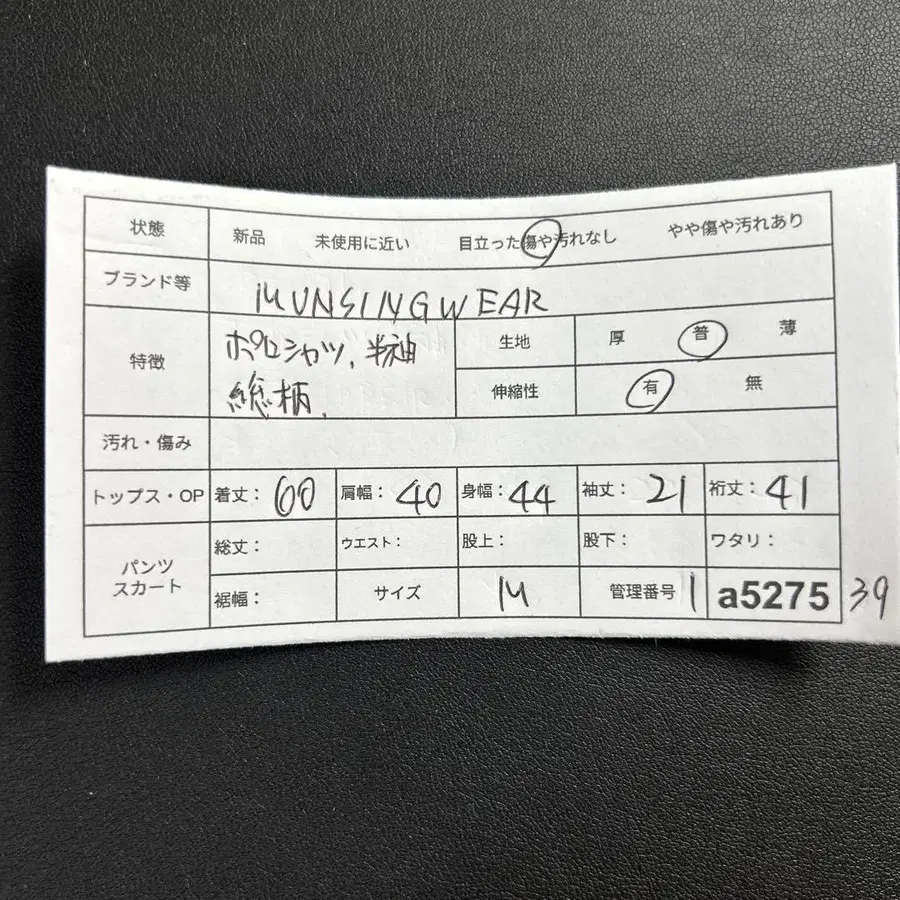 状態 新品 未使用に近い 目立った傷や汚れなし やや傷や汚れあり
ブランド等 MUNSINGWEAR
特徴 ポロシャツ、半袖 生地 厚 普 薄
総柄、 伸縮性 有 無
汚れ・傷み
トップス・OP 着丈: 60 肩幅: 40 身幅: 44 袖丈: 21 裄丈: 41
パンツ スカート 総丈: ウエスト: 股上: 股下: ワタリ:
裾幅: サイズ M 管理番号 1 a5275 39